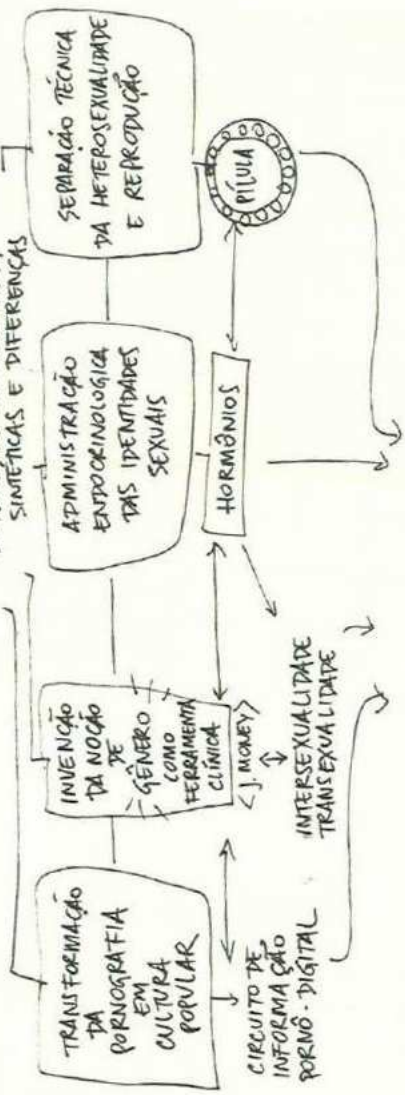 SINTÉTICAS E DIFERENÇAS
TRANSFORMAÇÃO
DA
PORNOGRAFIA
EM
CULTURA
POPULAR
INVENÇÃO
DA NOÇÃO
DE
GÊNERO
COMO
FERRAMENTA
CLÍNICA
<J. MONEY>
ADMINISTRAÇÃO
ENDOCRINOLOGICA
DAS IDENTIDADES
SEXUAIS
SEPARAÇÃO TÉCNICA
DA HETEROSEXUALIDADE
E REPRODUÇÃO
CIRCUITO DE
INFORMAÇÃO
PORNÔ-DIGITAL
INTERSEXUALIDADE
TRANSEXUALIDADE
HORMÔNIOS
PÍLULA